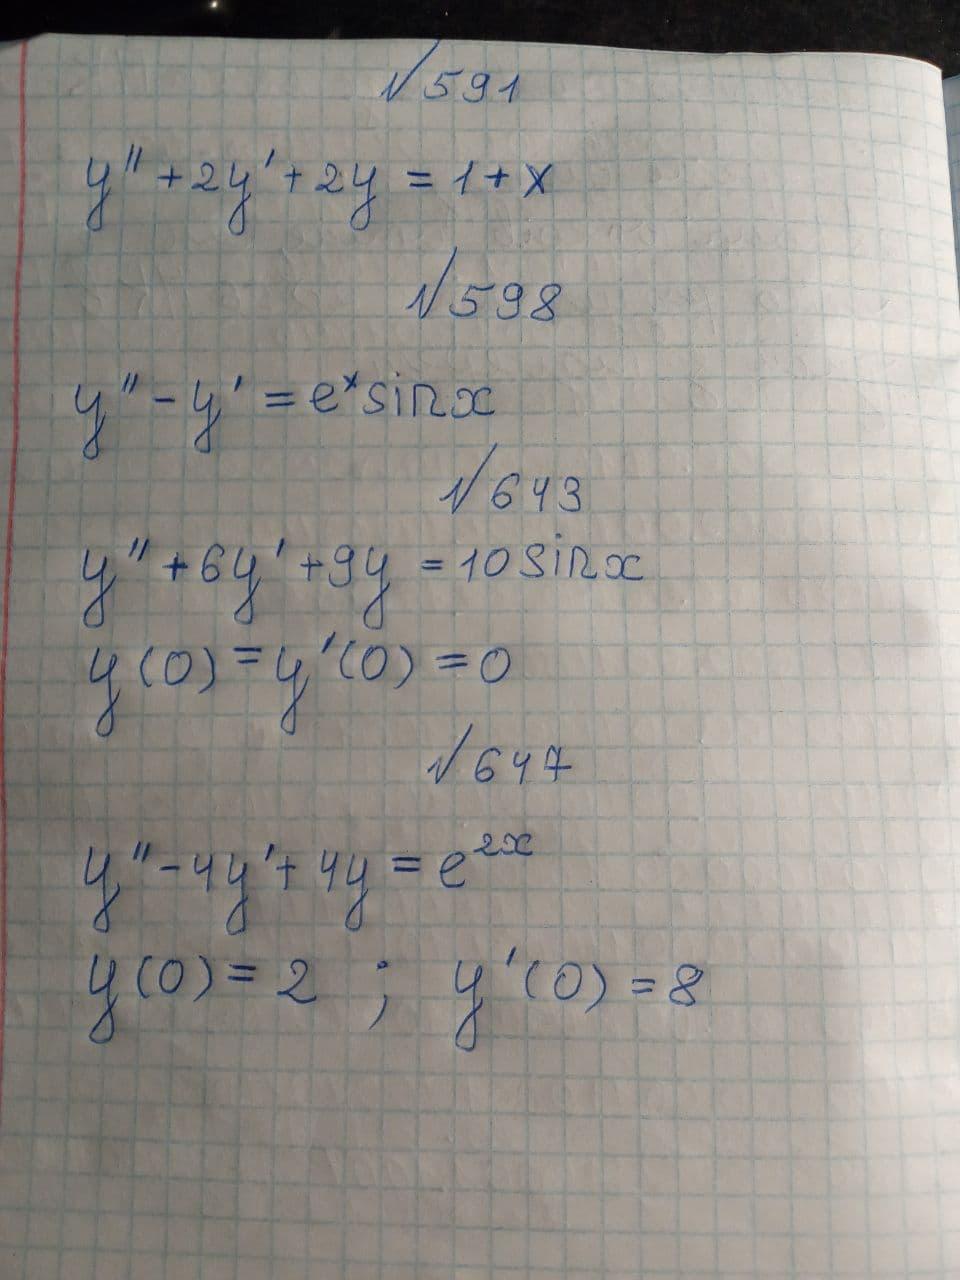 №591
y'' + 2y' + 2y = 1 + x
№598
y'' - y' = eˣ sin x
№643
y'' + 6y' + 9y = 10 sin x
y(0) = y'(0) = 0
№647
y'' - 4y' + 4y = e²ˣ
y(0) = 2 ; y'(0) = 8